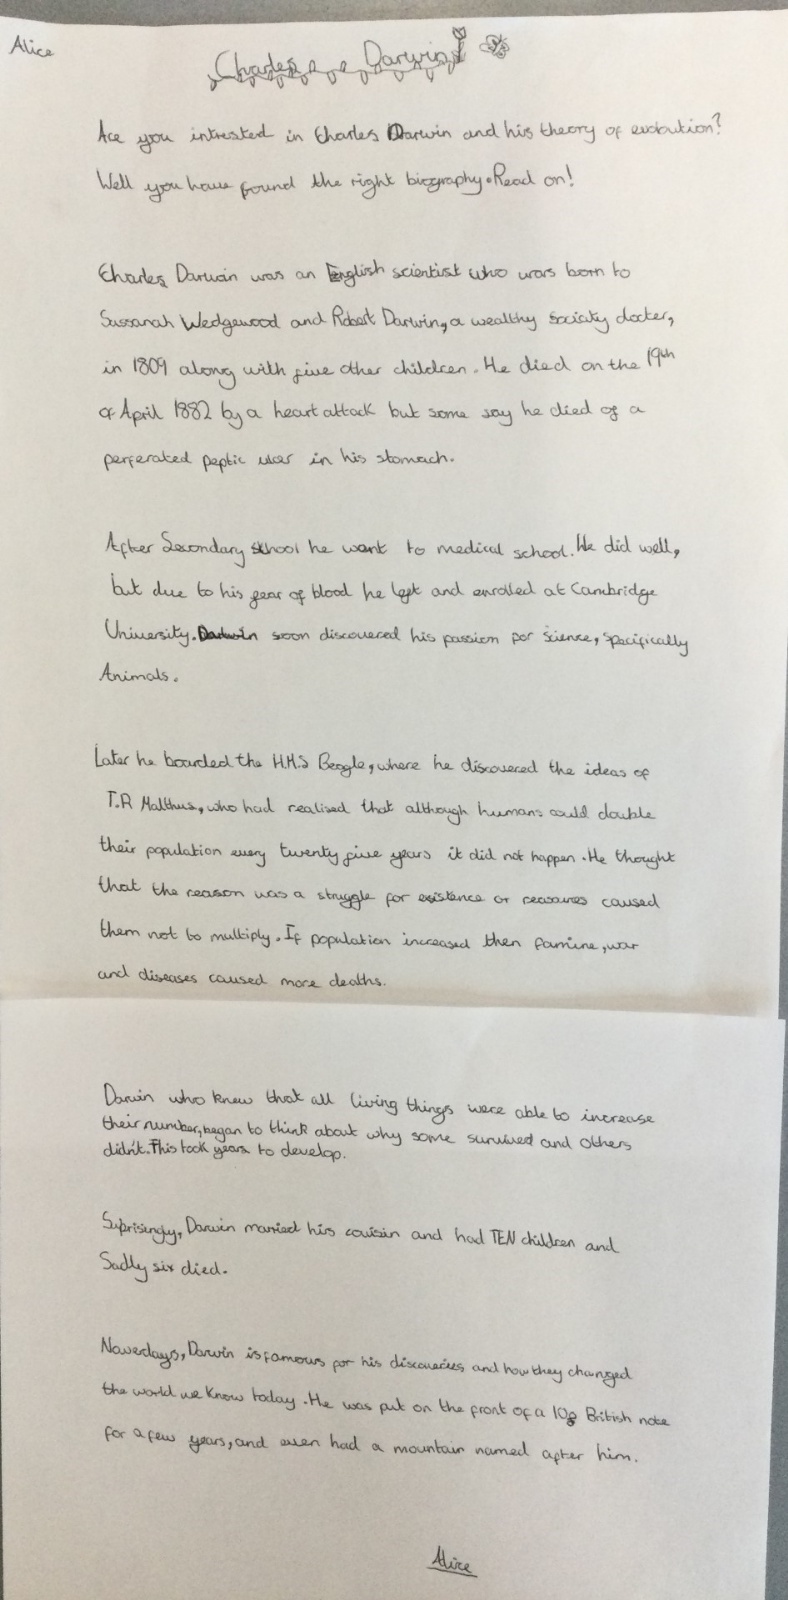 Alice
Charles Darwin
Are you intrested in Charles Darwin and his theory of evoloution?
Well you have found the right biography. Read on!
Charles Darwin was an English scientist who wars born to
Sussanah Wedgewood and Robert Darwin, a wealthy sociaty docter,
in 1809 along with five other children. He died on the 19th
of April 1882 by a heart attack but some say he died of a
perferated peptic ulcer in his stomach.
After Secondary school he want to medical school. He did well,
but due to his fear of blood he left and enrolled at Cambridge
University. Darwin soon discovered his passion for science, specifically
Animals.
Later he boarded the H.M.S Beagle, where he discovered the ideas of
T.R Malthus, who had realised that although humans could double
their population every twenty five years it did not happen. He thought
that the reason was a struggle for existence or reasources caused
them not to multiply. If population increased then famine, war
and diseases caused more deaths.
Darwin who knew that all living things were able to increase
their number, began to think about why some survived and others
didn't. This took years to develop.
Suprisingly, Darwin married his couisin and had TEN children and
Sadly six died.
Nowerdays, Darwin is famous for his discoveries and how they changed
the world we know today. He was put on the front of a 10 British note
for a few years, and even had a mountain named after him.
Alice